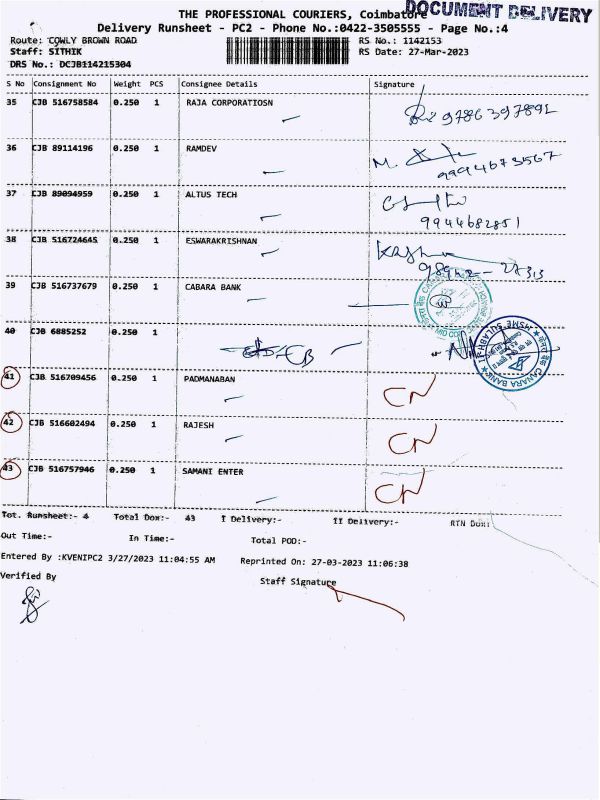 THE PROFESSIONAL COURIERS, Coimbatore
DOCUMENT DELIVERY
Delivery Runsheet - PC2 - Phone No.:0422-3505555 - Page No.:4
Route: COWLY BROWN ROAD RS No.: 1142153
Staff: SITHIK RS Date: 27-Mar-2023
DRS No.: DCJB114215304
S No Consignment No Weight PCS Consignee Details Signature
35 CJB 516758584 0.250 1 RAJA CORPORATIOSN 9786397891
36 CJB 89114196 0.250 1 RAMDEV
9994673567
37 CJB 89094959 0.250 1 ALTUS TECH
9944682851
38 CJB 516724645 0.250 1 ESWARAKRISHNAN
39 CJB 516737679 0.250 1 CABARA BANK
40 CJB 6885252 0.250 1
CANARA BANK
MSME SULABH
41 CJB 516709456 0.250 1 PADMANABAN CN
42 CJB 516602494 0.250 1 RAJESH CN
43 CJB 516757946 0.250 1 SAMANI ENTER CN
Tot. Runsheet:- 4 Total Dox:- 43 I Delivery:- II Delivery:- RTN Dox:
Out Time:- In Time:- Total POD:-
Entered By :KVENIPC2 3/27/2023 11:04:55 AM Reprinted On: 27-03-2023 11:06:38
Verified By Staff Signature